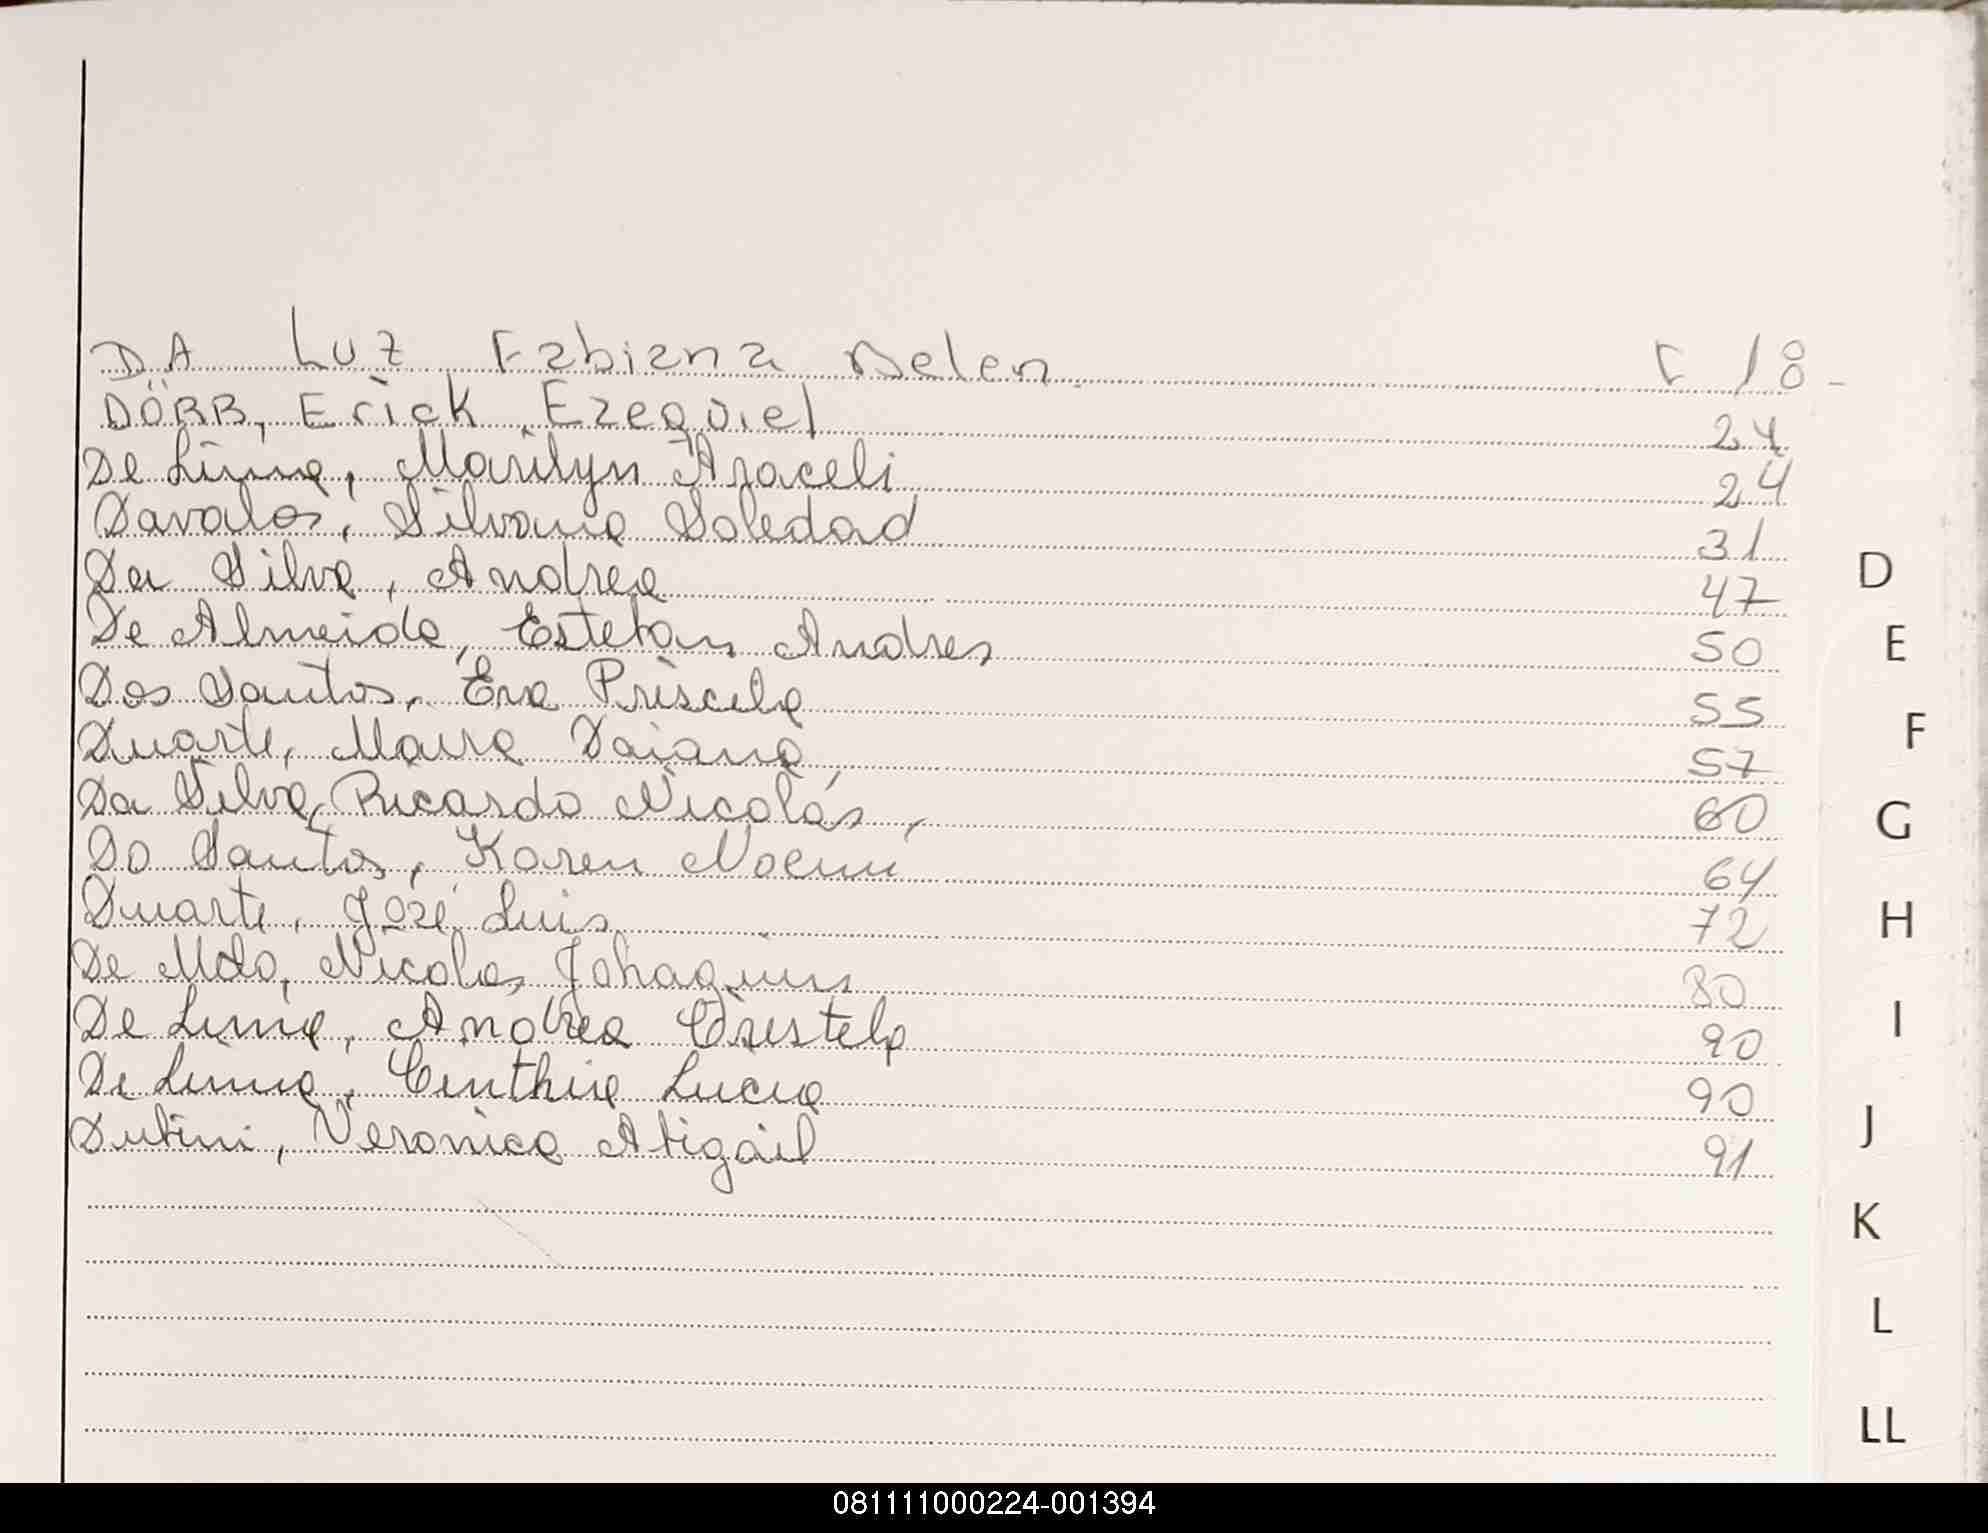 DA Luz Fabiana Belen F 18-
DÖRR, Erick Ezequiel 24
De Lima, Marilyn Araceli 24
Davalos, Silvana Soledad 31
Da Silva, Andrea 47
De Almeida, Esteban Andres 50
Dos Santos, Eva Priscila 55
Duarte, Maira Daiana 57
Da Silva, Ricardo Nicolás, 60
Do Santos, Karen Noemi 64
Duarte, José Luis 72
De Melo, Nicolas Johaquin 80
De Lima, Andrea Cristela 90
De Lima, Cinthia Lucia 90
Dutini, Veronica Abigail 91
D
E
F
G
H
I
J
K
L
LL
081111000224-001394